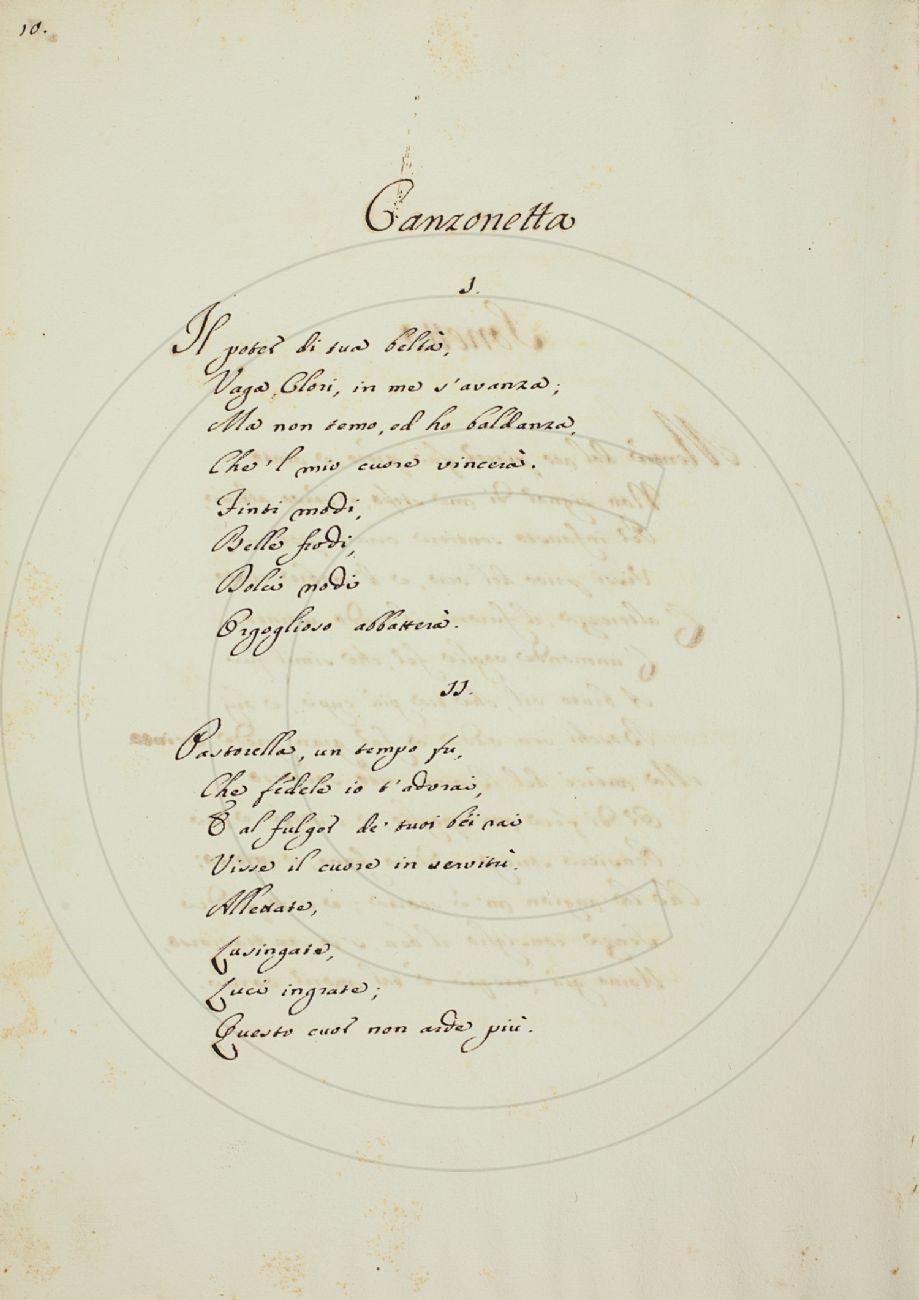 10.
Canzonetta
I.
Il poter di tua beltà,
Vaga Clori, in me s'avanza;
Ma non temo, ed ho baldanza,
Che'l mio cuore vincerà.
Finti modi,
Belle frodi,
Dolci nodi
Orgoglioso abbatterà.
II.
Pastorella, un tempo fu,
Che fedele io t'adorai,
E al fulgor de' tuoi bei rai
Visse il cuore in servitù.
Allettate,
Lusingate,
Luci ingrate;
Questo cuor non arde più.